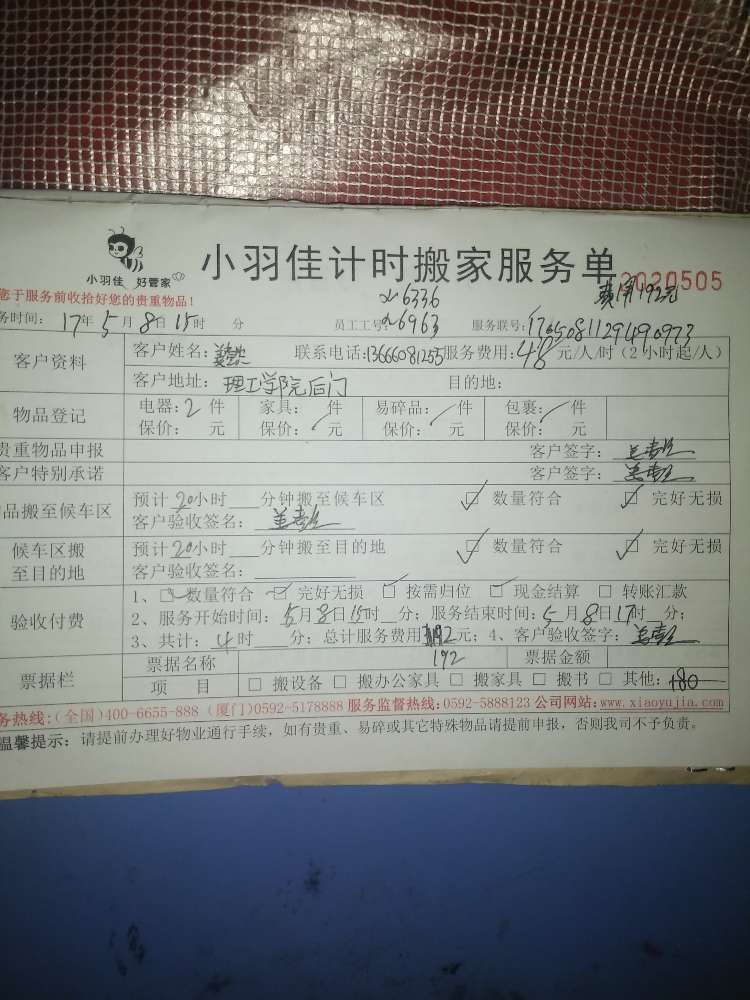 小羽佳 好管家
小羽佳计时搬家服务单
2020505
费用192元
您于服务前收拾好您的贵重物品!
6336
务时间: 17年5月8日15时 分 员工工号: 6963 服务联号:
客户资料
客户姓名: 联系电话:13666081255 服务费用:48元/人/时(2小时起/人)
客户地址: 理工学院后门 目的地:
物品登记
电器:2件 家具: 件 易碎品: 件 包裹: 件
保价: 元 保价: 元 保价: 元 保价: 元
贵重物品申报 客户签字:
客户特别承诺 客户签字:
品搬至候车区
预计20小时 分钟搬至候车区 ☑ 数量符合 ☑ 完好无损
客户验收签名:
候车区搬
至目的地
预计20小时 分钟搬至目的地 ☑ 数量符合 ☑ 完好无损
客户验收签名:
验收付费
1、☑ 数量符合 ☑ 完好无损 ☑ 按需归位 ☑ 现金结算 □ 转账汇款
2、服务开始时间: 5月8日15时 分; 服务结束时间: 5月8日17时 分;
3、共计: 4时 分; 总计服务费用192元; 4、客户验收签字:
票据栏
票据名称 192 票据金额
项 目 □ 搬设备 □ 搬办公家具 □ 搬家具 □ 搬书 □ 其他: 180
务热线:(全国)400-6655-888 (厦门)0592-5178888 服务监督热线:0592-5888123 公司网站:www.xiaoyujia.com
温馨提示: 请提前办理好物业通行手续, 如有贵重、易碎或其它特殊物品请提前申报, 否则我司不予负责。